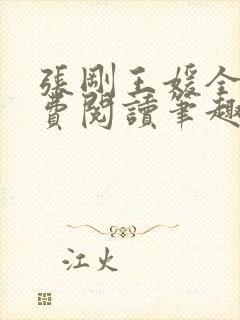 張剛王媛全
費閱讀筆趣
江火